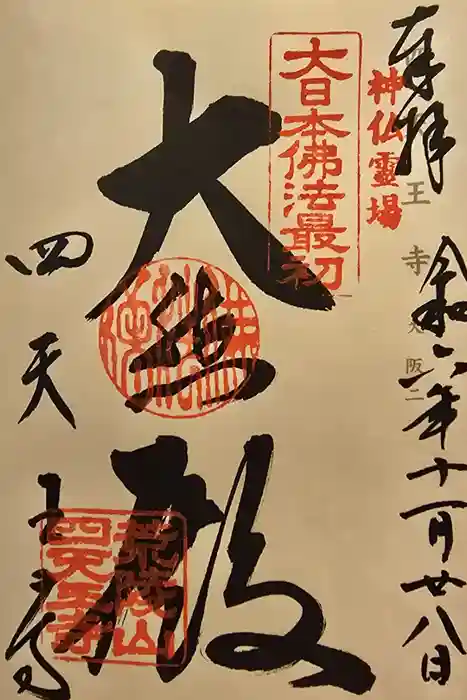 奉拝
神仏霊場
王寺 大阪二
令和六年十一月廿八日
大日本佛法最初
大悲殿
四天王寺
荒陵山
四天王寺